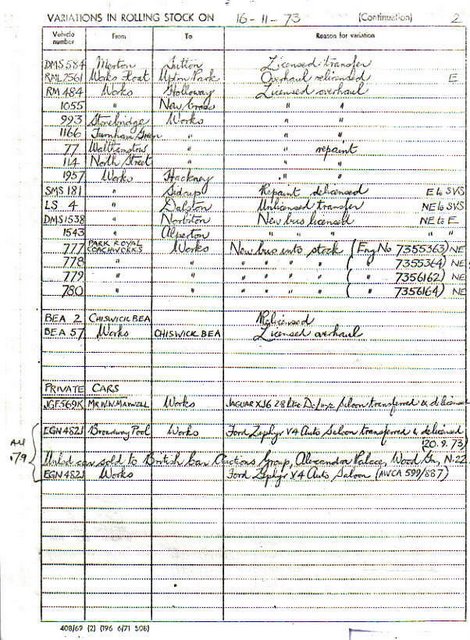 VARIATIONS IN ROLLING STOCK ON 16-11-73 (Continuation) 2
Vehicle number From To Reason for variation
DMS 584 Merton Sutton Licensed transfer
RML 2561 Works Float Upton Park Overhaul relicensed E
RM 484 Works Holloway Licensed overhaul
1055 " New Cross " "
993 Stockbridge Works " "
1166 Turnham Green " " "
77 Walthamstow " " repaint
114 North Street " " "
1957 Works Hackney " "
SMS 181 " Sidcup Repaint delicensed E to SVS
LS 4 " Dalston Unlicensed transfer NE to SVS
DMS 1538 " Norbiton New bus licensed NE to E
1543 " Alperton " " " " "
777 PARK ROYAL COACHWORKS Works New bus into stock (Eng No 7355363) NE
778 " " " " " " ( " " 7355364) NE
779 " " " " " " ( " " 7356162) NE
780 " " " " " " ( " " 7356164) NE
BEA 2 CHISWICK BEA Relicensed
BEA 57 Works CHISWICK BEA Licensed overhaul
PRIVATE CARS
JGF 569K MR W.W. MAXWELL Works JAGUAR XJ6 2.8 litre De Luxe Saloon transferred & delicensed
EGN 482J Broadway Pool Works Ford Zephyr V4 Auto Saloon transferred & delicensed
(20.9.73)
Untaxed car sold to British Car Auctions Group, Alexandra Palace, Wood Gn, N.22
EGN 482J Works Ford Zephyr V4 Auto Saloon (AWCA 599/887)
408/69 (2) (196 6/71 50B)